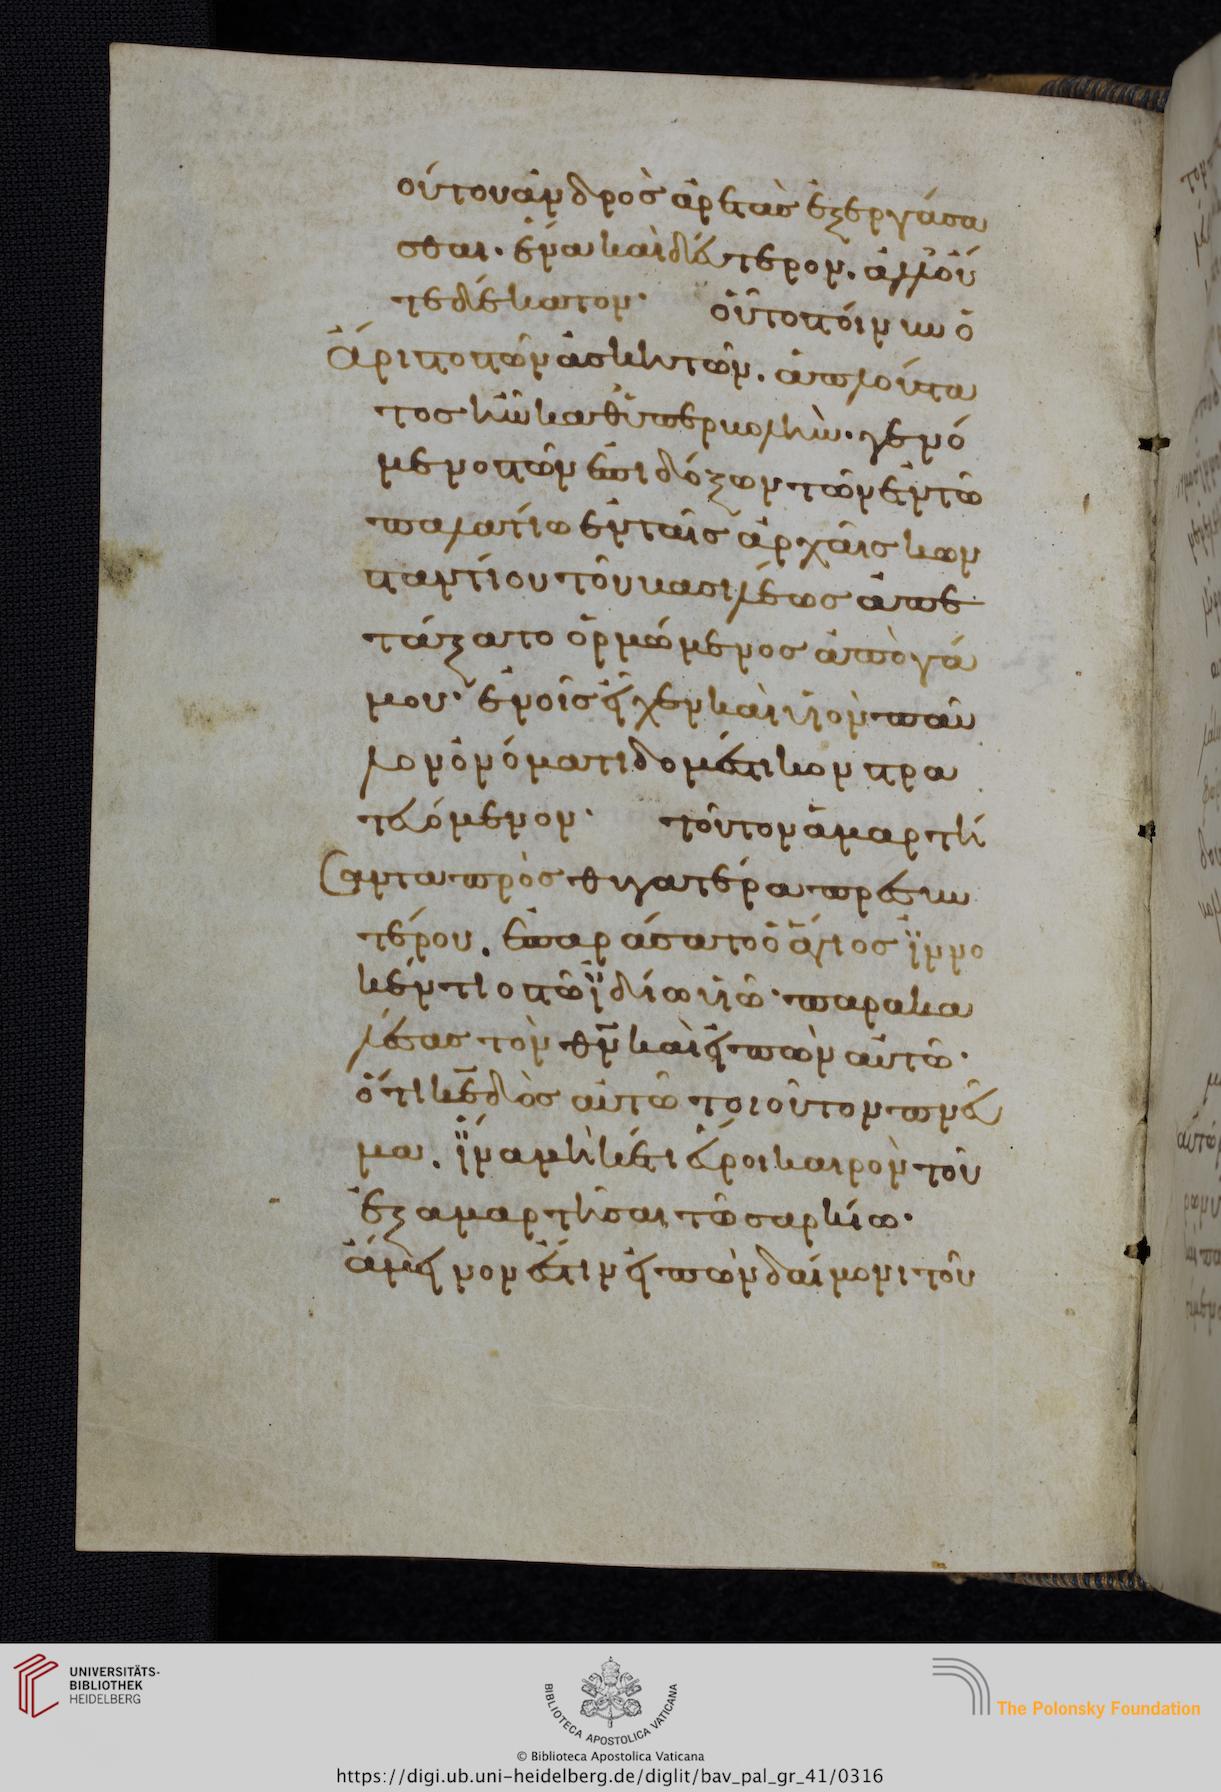 οὐ τοῦ ἀνδρὸς ἀρετὰς ἐξεργάσα
σθαι· ἕνα καὶ δεύτερον. ἀλλ' οὐ
τε δέκατον· οὗτος τοίνυν ὁ
ἄριστος τῶν ἀσκητῶν. ἁπλούστα
τος ἦν καθ' ὑπερβολήν· γενό
μενος τῶν ἐπιδόξων τῶν ἐν τῶ
παλατίω ἐν ταῖς ἀρχαῖς κων
σταντίου τοῦ βασιλέως ἀπε
τάξατο ὁρμώμενος ἀπὸ γά
μου· ἐν οἷς εἶχεν καὶ υἱὸν παῦ
λον ὀνόματι δομέστικον στρα
τευόμενον· τοῦτον ἁμαρτή
σαντα πρὸς θυγατέρα πρεσβυ
τέρου. ἐπαράσατο ὁ ἅγιος ἰννο
κέντιος τῶ ἰδίω υἱῶ· παρακα
λέσας τὸν θν καὶ εἰπὼν αὐτῶ·
ὅτι κε δὸς αὐτῶ τοιοῦτον πνεῦ
μα. ἵνα μὴ κέτι εὕροι καιρὸν τοῦ
ἐξαμαρτῆσαι τῶ σαρκίω·
ἄμεινον ἔστιν εἰπὼν δαίμονι τοῦ
UNIVERSITÄTS-
BIBLIOTHEK
HEIDELBERG
BIBLIOTECA APOSTOLICA VATICANA
The Polonsky Foundation
© Biblioteca Apostolica Vaticana
https://digi.ub.uni-heidelberg.de/diglit/bav_pal_gr_41/0316